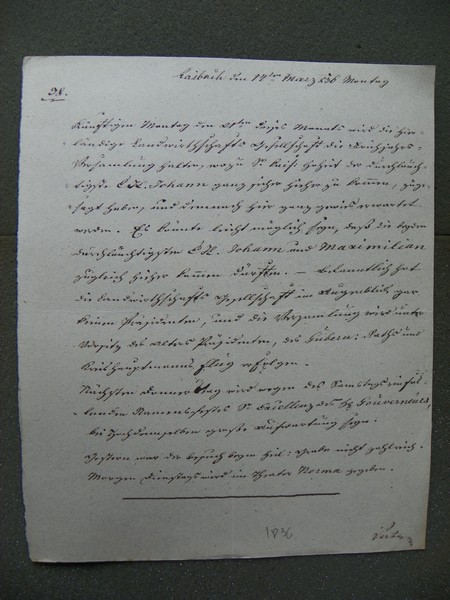 Laibach den 14ten März 836 Montag
38.
Künftigen Montag den 21ten dieses Monats wird die hier-
ländige Landwirthschafts Gesellschaft die Frühjahrs-
Versamlung halten, wozu Se Kais: Hoheit der durchlauch-
tigste E. H. Johann ganz sicher hieher zu kommen, zuge-
sagt haben, und demnach hier ganz gewis erwartet
werden. Es könnte leicht möglich seyn, daß die beyden
durchlauchtigsten E. H. Johann und Maximilian
zugleich hieher kommen dürften. — Bekanntlich hat
die Landwirthschafts Gesellschaft im Augenblick gar
keinen Präsidenten, und die Versamlung wird unter
Vorsitz des Alters Präsidenten, des Gubern: Raths und
Kreishauptmanns Fluck erfolgen.
Nächsten Donnerstag wird wegen des Samstags einfal-
lenden Namensfestes Sr Excellenz des H. Gouverneurs,
bei Hochdemselben große Aufwartung seyn.
Gestern war der Besuch beym heil: Grabe nicht zahlreich.
Morgen Dienstag wird im Theater Norma gegeben.
1836